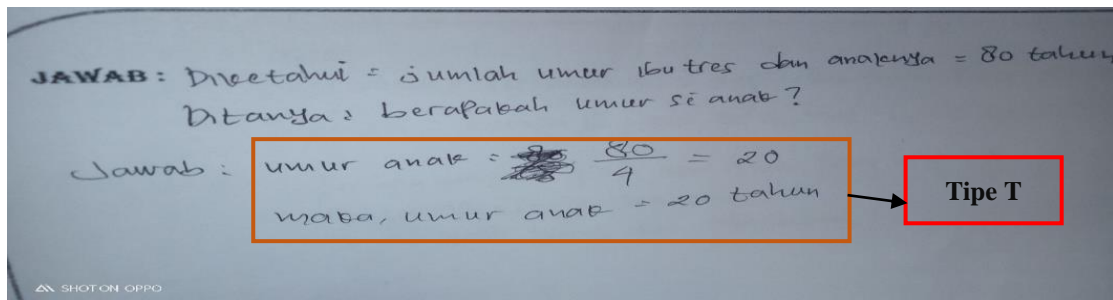 JAWAB : Diketahui = jumlah umur ibu tres dan anaknya = 80 tahun
Ditanya : berapakah umur si anak?
Jawab : umur anak = 80/4 = 20
maka, umur anak = 20 tahun
Tipe T
SHOT ON OPPO